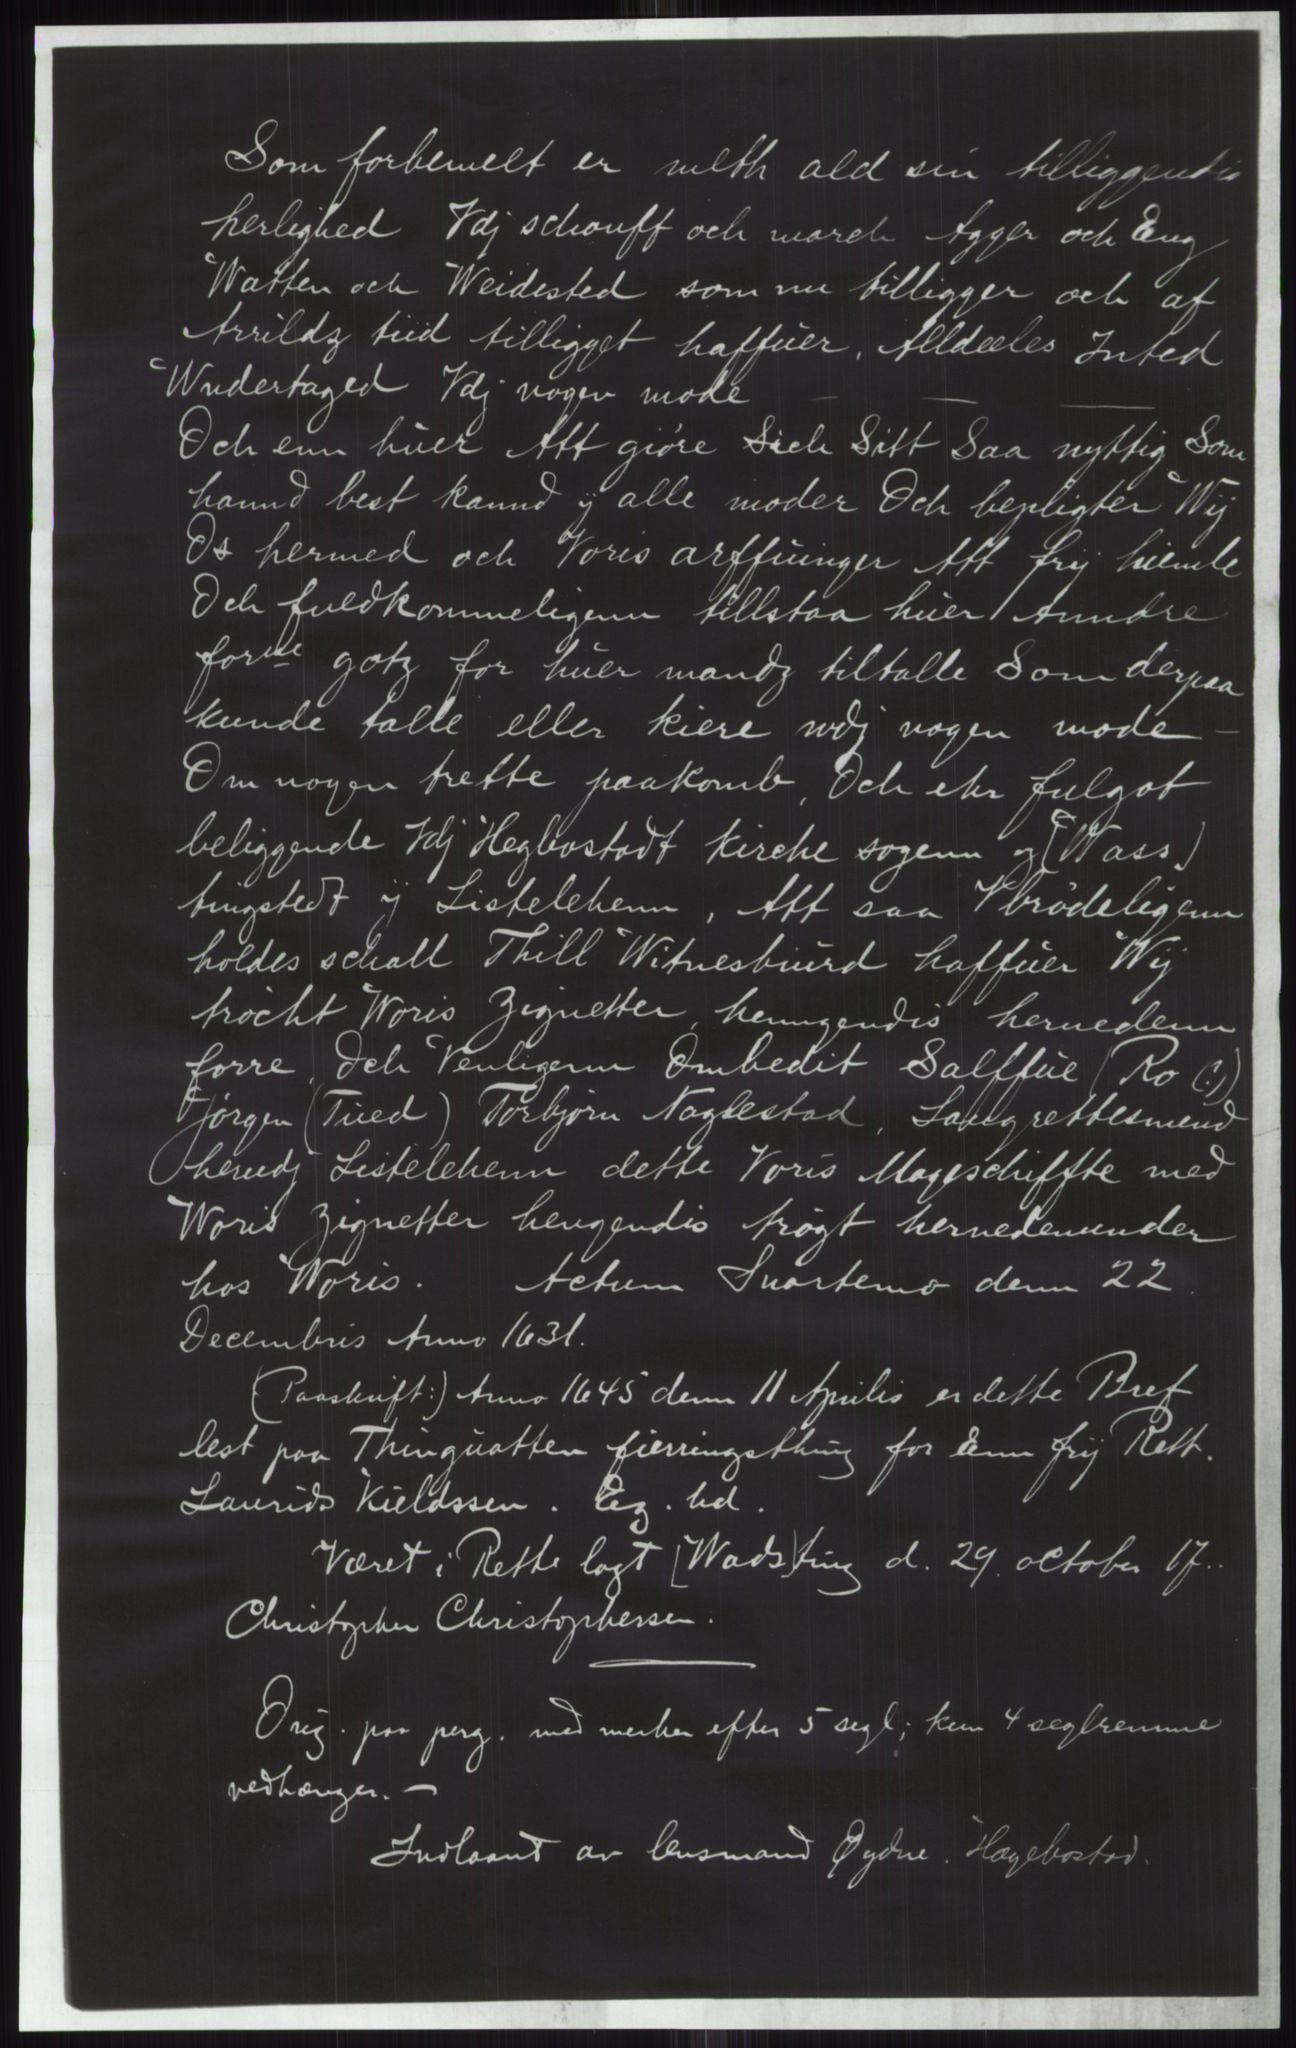 Som forbemelt er meth ald sin tilliggendis
herlighed Vdj schouff och march Agger och Eng
Watten och Weidested som nu tilligger och af
Arrildz tiid tilligget haffuer, Alldeeles Inted
Wndertaged Vdj nogen mode — — —
Och enn huer Att giöre Sich Sitt Saa nyttig Som
hannd best kannd ÿ alle moder Och bepligter Wij
Os hermed och Voris arffuinger Att frij hiemle
Och fuldkommeligenn tillstaa huer Anndre
forne gotz for huer mandz tiltalle Som derpaa
kunde talle eller kiere wdj nogen mode —
Om nogen trette paakomb, Och ehr fulgot
beliggende Vdj Hegbostadt kirche sogenn og [Wass]
tingstedt ÿ Listelehenn, Att saa Vbrödeligenn
holdes schall Thill Witnesbiurd haffuer Wij
tröcht Woris Zignetter, henngendis hernedenn
forre, Och Venligenn Ombedit Salffue (Ro (:))
Jörgen (Tued) Torbjørn Naglestad, Laugrettesmend
herudj Listelehenn dette Voris Mageschiffte med
Woris Zignetter hengendis trögt hernedenunder
hos Woris. Actum Snartemo denn 22
Decembris Anno 1631.
(Paaskrift:) Anno 1645 denn 11 Aprilis er dette Bref
lest paa Thinguatten fierringsthing for Enn frij Rett.
Laurids Kieldssen. Eg. hd.
Været i Rette lagt [Wads]ting d. 29. october 17..
Christopher Christophersen.
Orig. paa perg. med merker efter 5 segl; kun 4 seglremme
vedhænger. —
Indlaant av lensmand Øydne. Hægebostad.